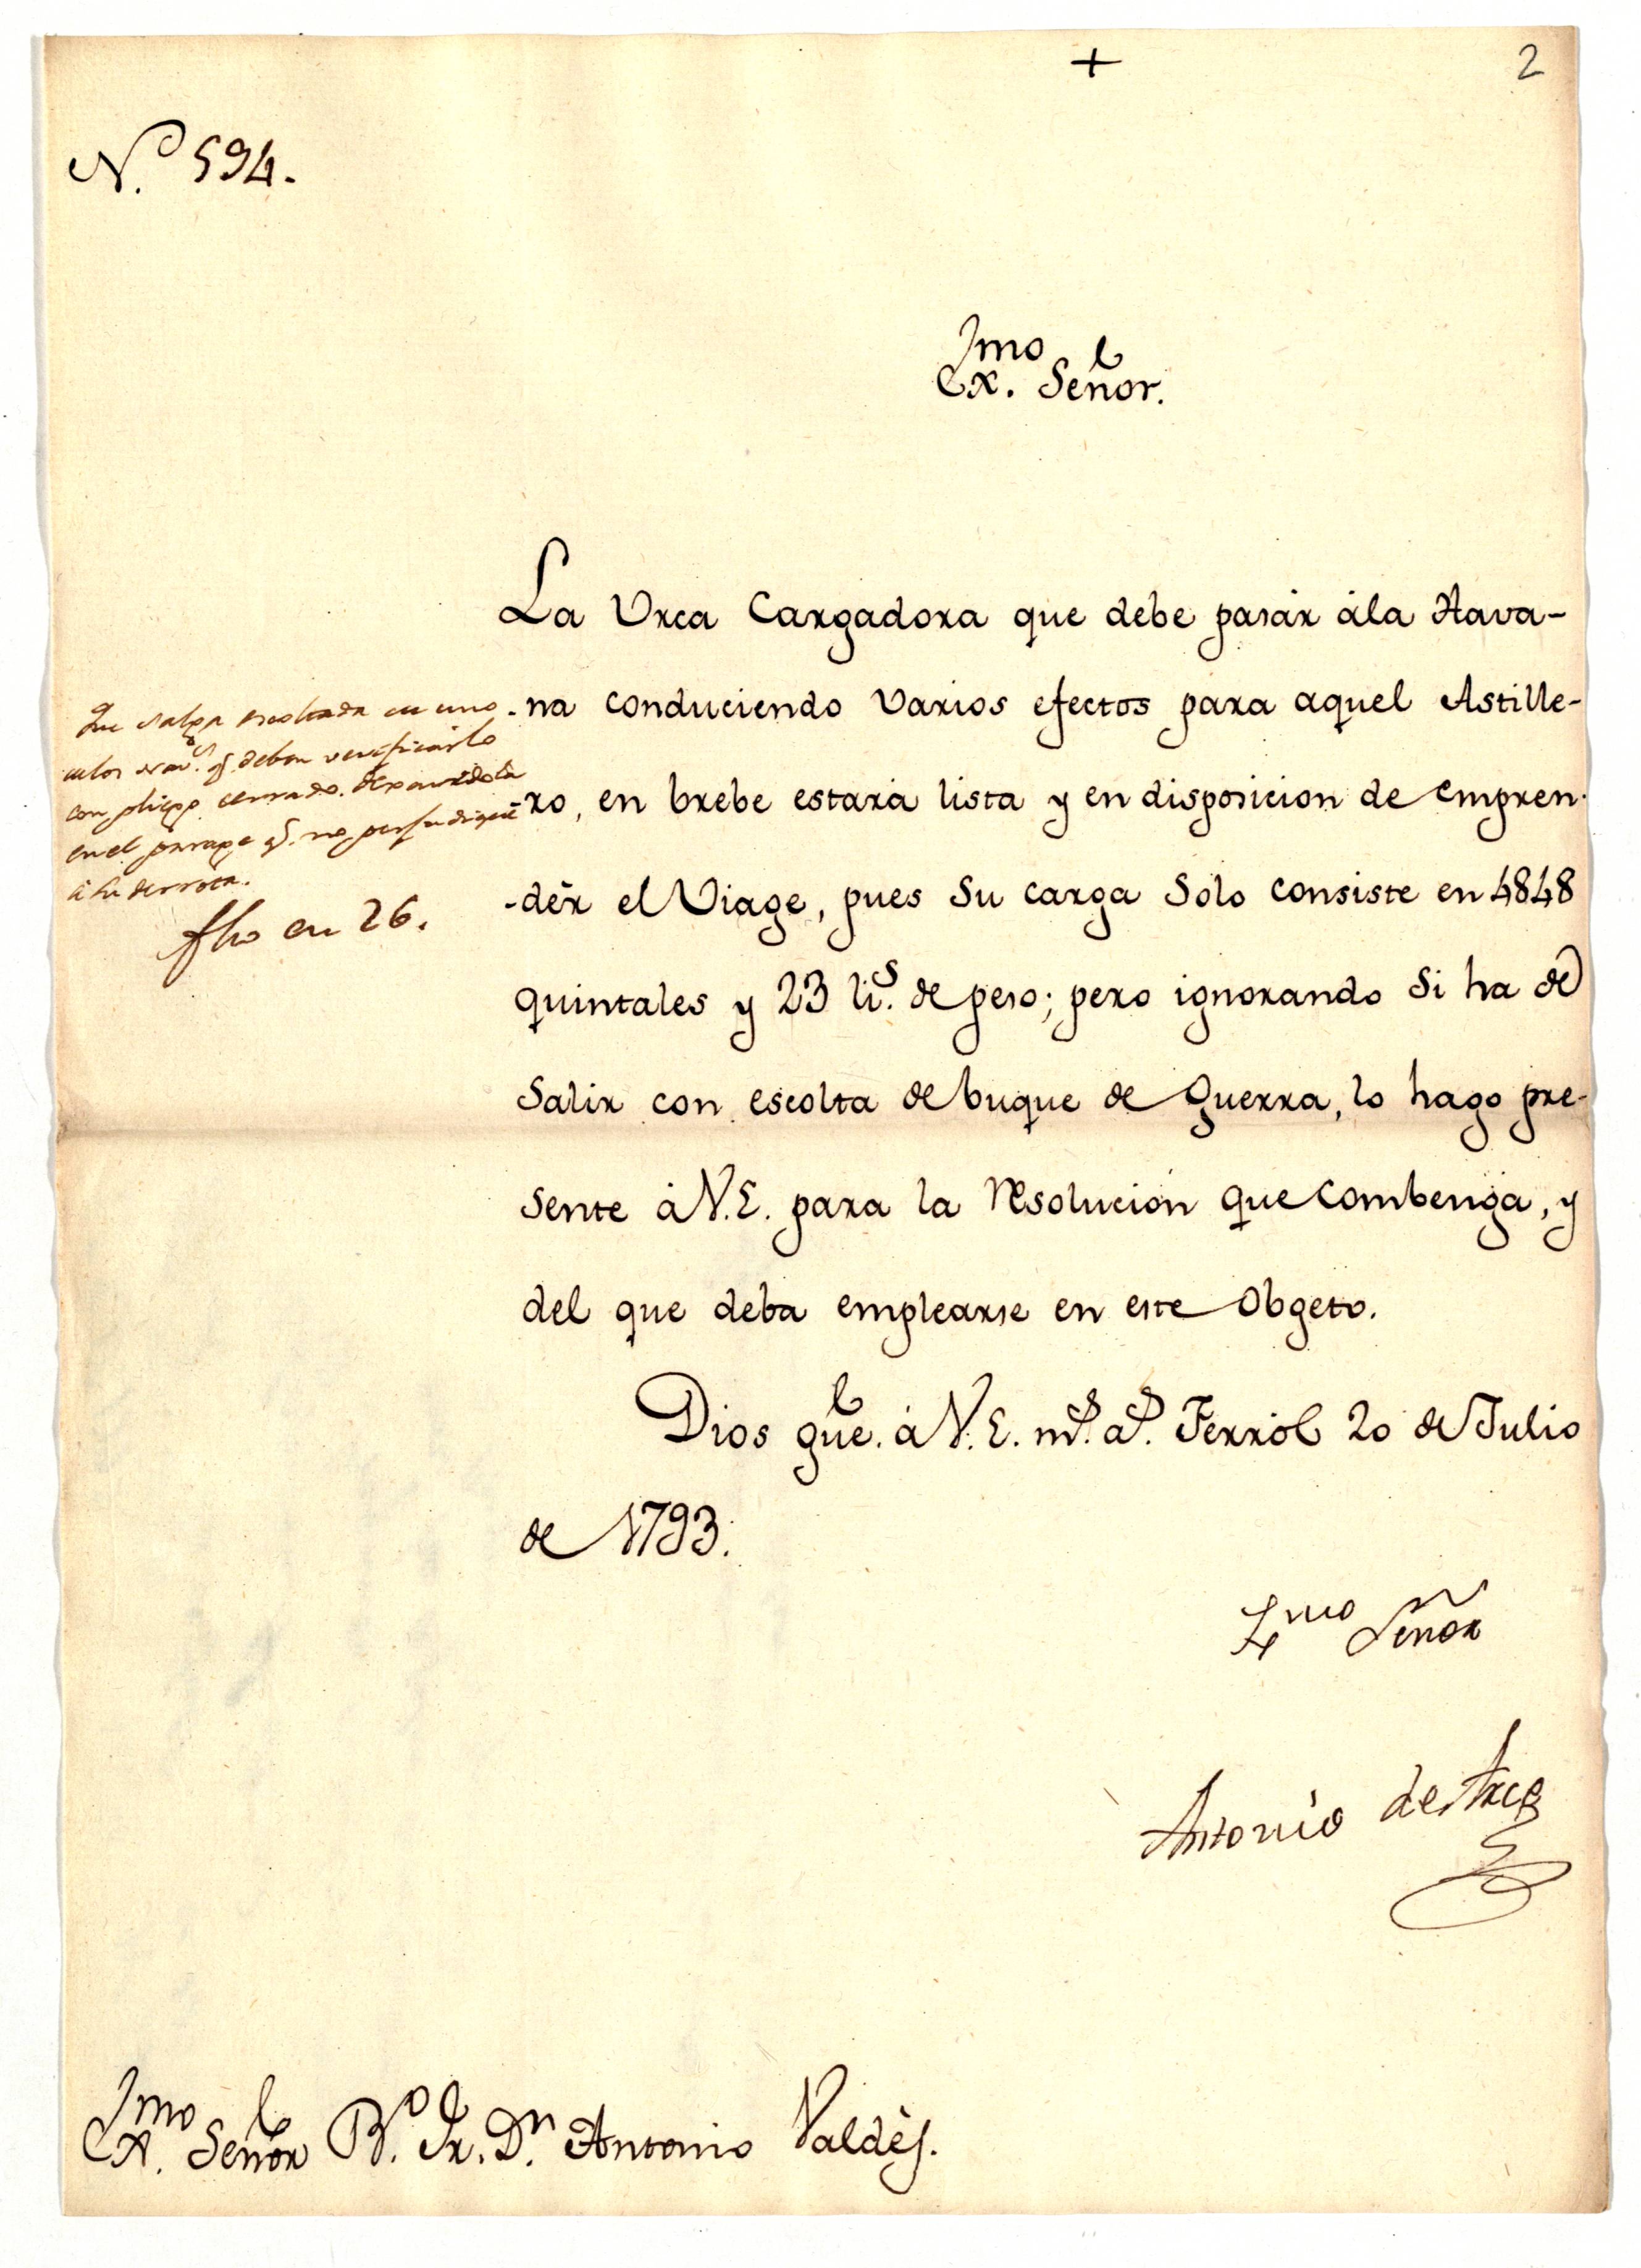 +
2
N.º 594.
Exmo. Señor.
La Urca Cargadora que debe pasár ála Hava-
-na conduciendo varios efectos para aquel Astille-
ro, en brebe estará lista y en disposicion de empren-
-dér el Viage, pues su carga solo consiste en 4848
quintales y 23 lis. de peso; pero ignorando si ha de
salir con escolta de buque de Guerra, lo hago pre-
sente á V.E. para la resolucion que combenga, y
del que deba emplearse en este obgeto.
Dios gue. á V.E. ms. as. Ferról 20 de Julio
de 1793.
Exmo Señor
Antonio de Arce
Que salga escoltada de uno
de los nav.s q. deban verificarlo
con pliego cerrado. dexandola
en el parage q. no perjudique
á su derrota.
fho en 26.
Exmo. Señor B.º Fr. Dn. Antonio Valdés.